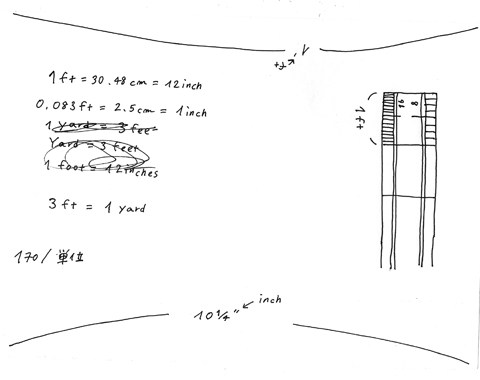 1'
ft
1ft = 30.48cm = 12inch
0.083ft = 2.5cm = 1inch
1 yard = 3 feet
Yard = 3 feet
1 foot = 12 inches
3 ft = 1 yard
170/単位
1ft
16
8
10 1/4" inch